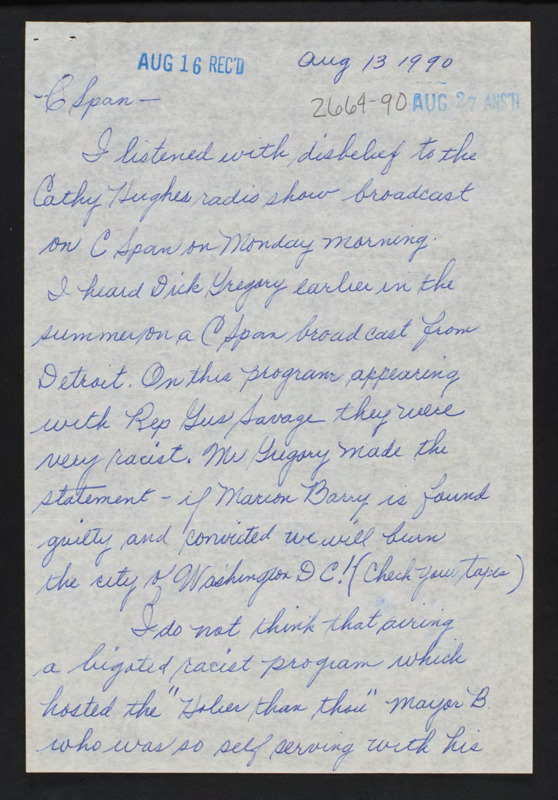 AUG 16 REC'D
Aug 13 1990
- C Span -
2664-90 AUG 27 ANS'D
I listened with disbelief to the
Cathy Hughes radio show broadcast
on C Span on Monday morning.
I heard Dick Gregory earlier in the
summer on a C Span broadcast from
Detroit. On this program appearing
with Rep Gus Savage they were
very racist. Mr Gregory made the
statement - if Marion Barry is found
guilty and convicted we will burn
the city of Washington D C! (Check your tapes)
I do not think that airing
a bigoted racist program which
hosted the "Holier than thou" Mayor B
who was so self serving with his